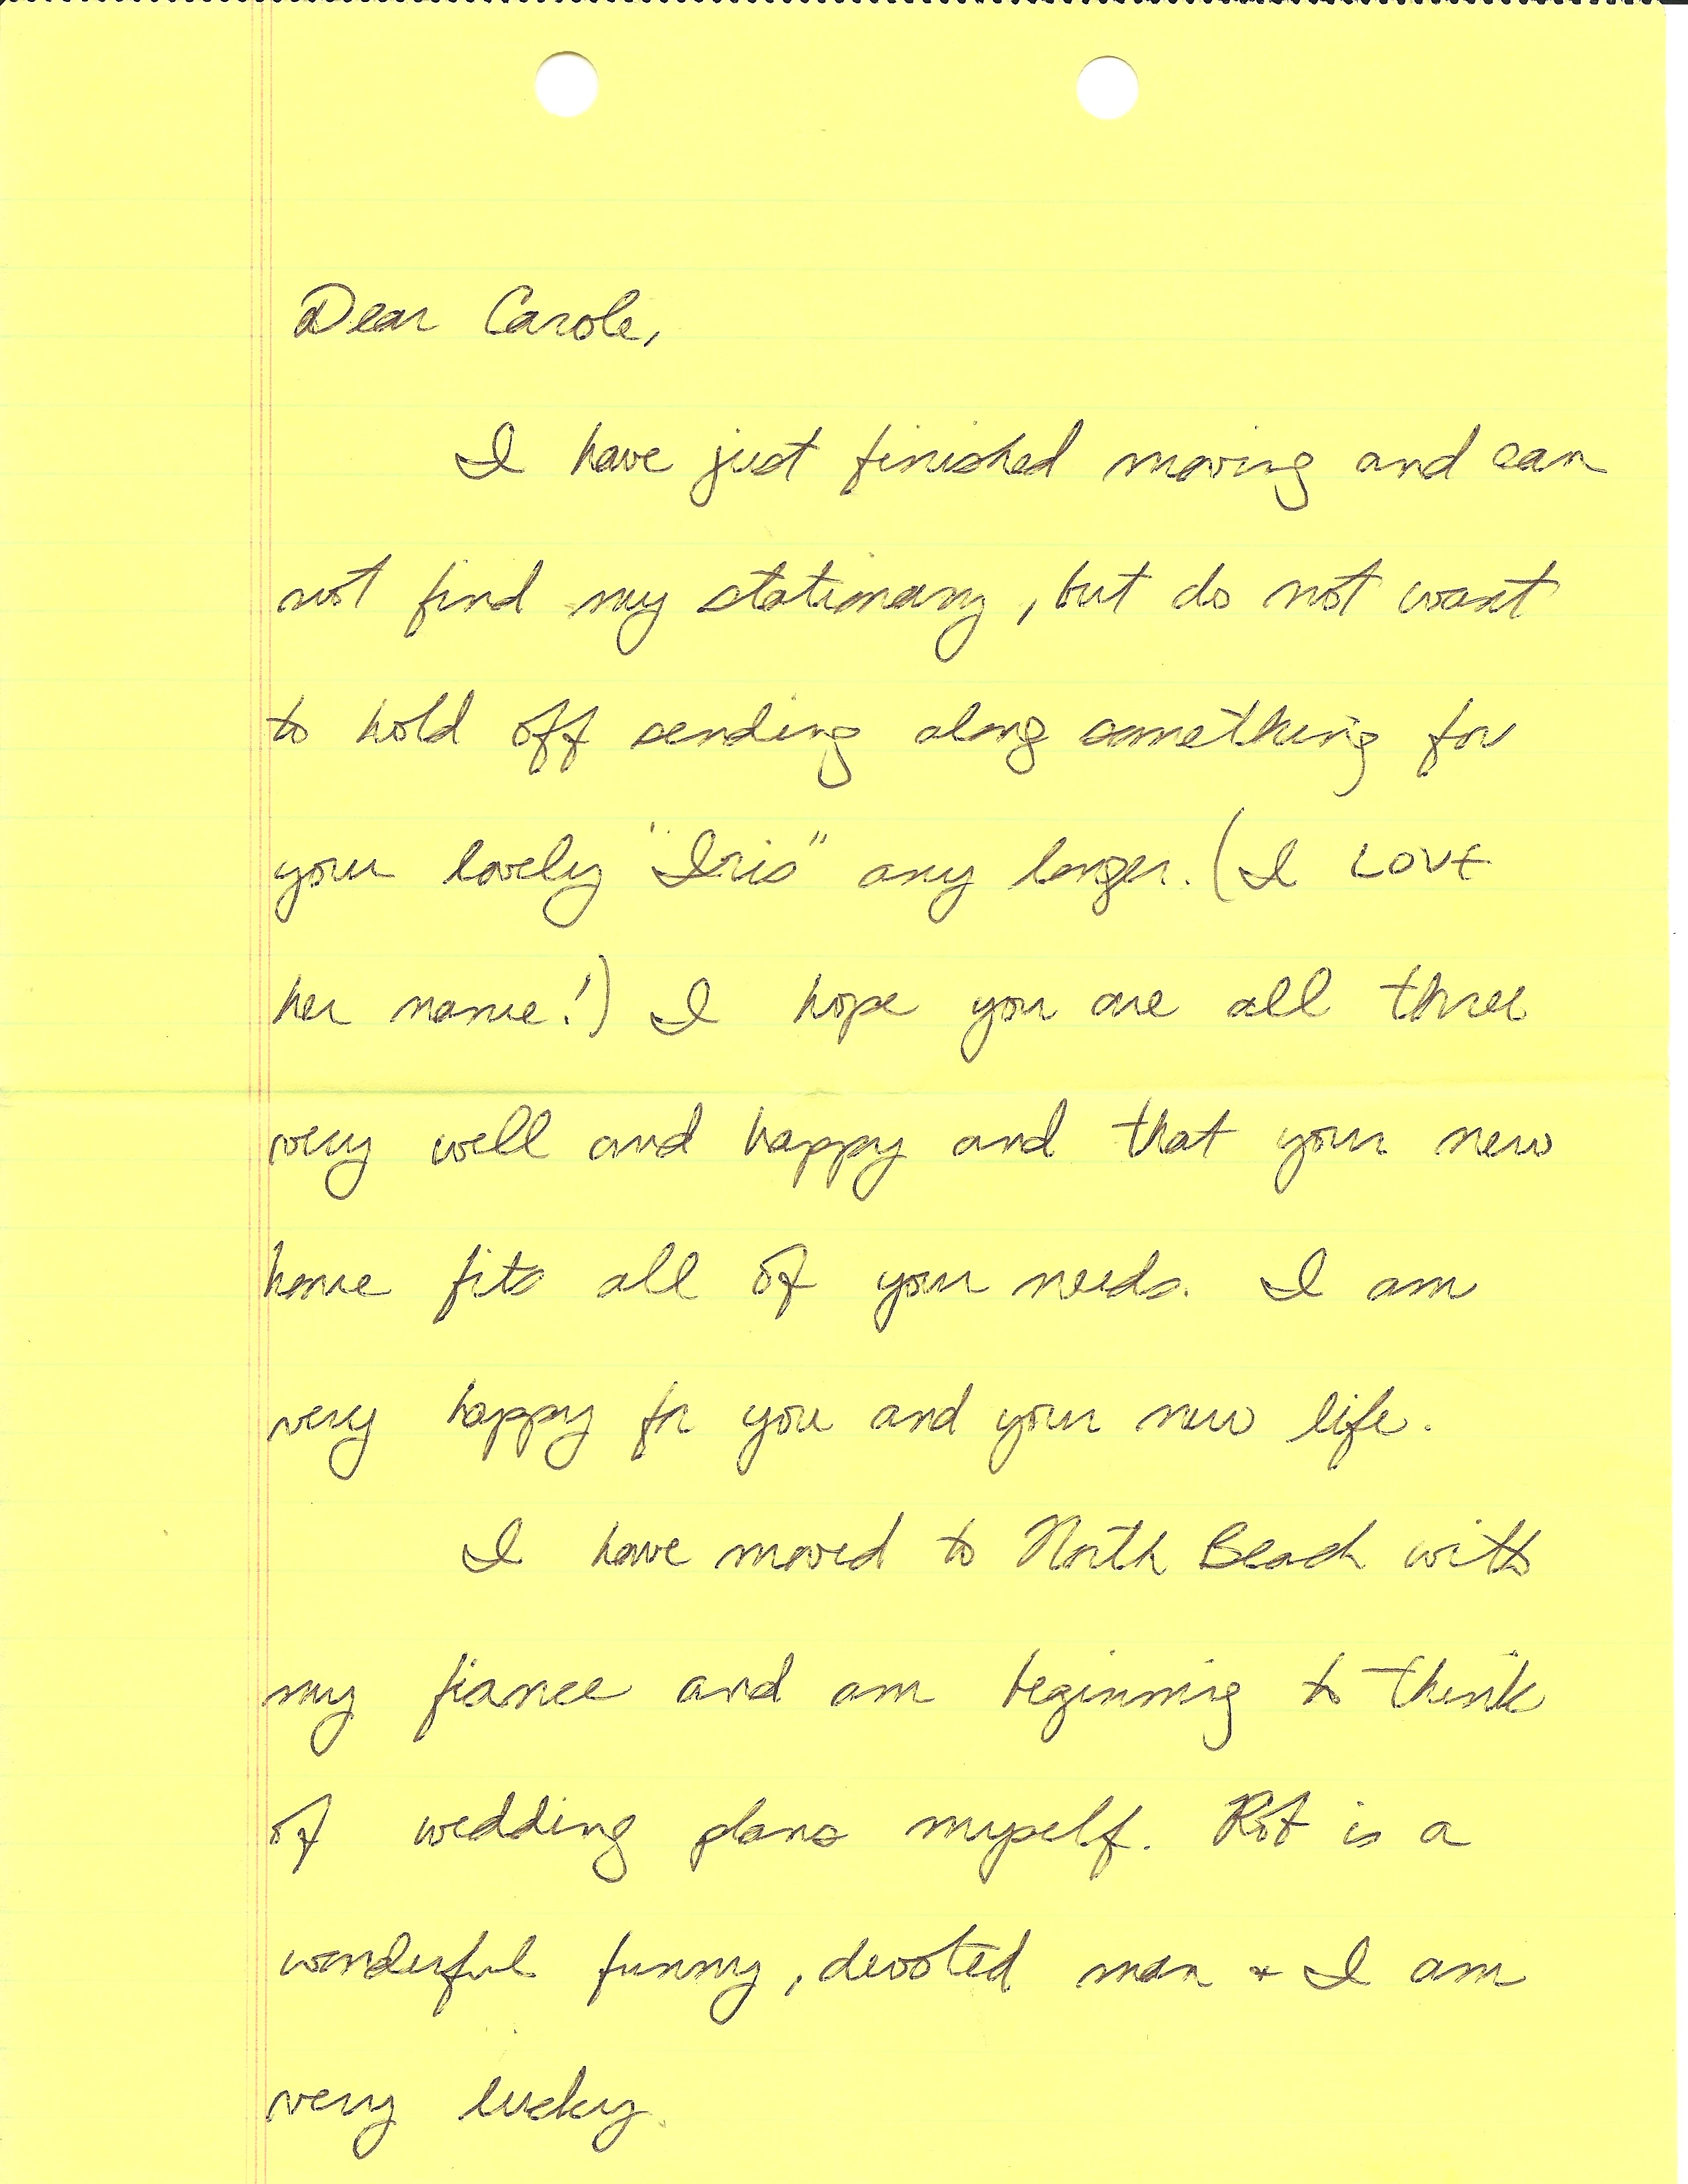 Dear Carole,
I have just finished moving and can
not find my stationary, but do not want
to hold off sending along something for
your lovely "Iris" any longer. (I LOVE
her name!) I hope you are all three
very well and happy and that your new
home fits all of your needs. I am
very happy for you and your new life.
I have moved to North Beach with
my fiancee and am beginning to think
of wedding plans myself. is a
wonderful funny, devoted man + I am
very lucky.